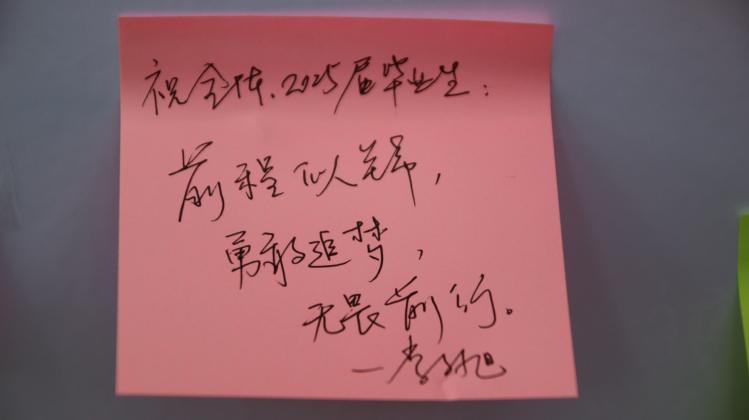 祝全体2025届毕业生：
前程似锦，
勇敢追梦，
无畏前行。